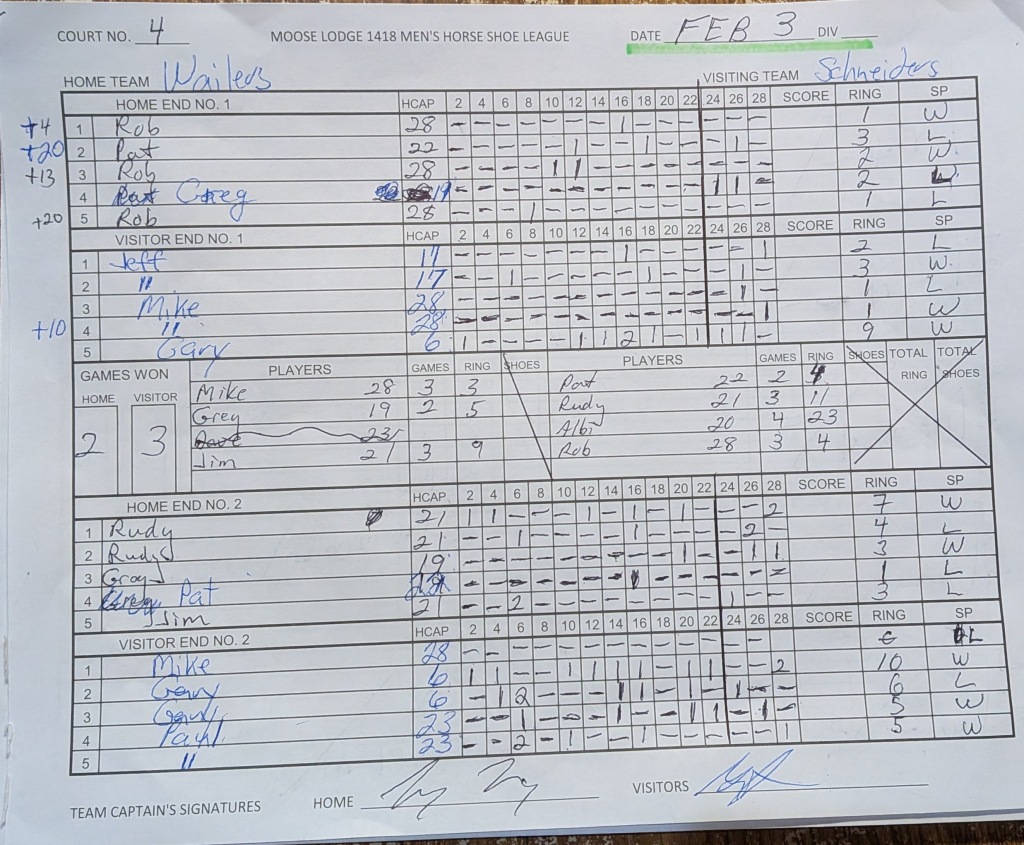 COURT NO. 4 MOOSE LODGE 1418 MEN'S HORSE SHOE LEAGUE DATE FEB 3 DIV
HOME TEAM Wailers VISITING TEAM Schneiders
HOME END NO. 1 HCAP 2 4 6 8 10 12 14 16 18 20 22 24 26 28 SCORE RING SP
+4 1 Rob 28 - - - - - - - 1 - - - - - - 1 W
+20 2 Pat 22 - - - - - 1 - - 1 - - - 1 - 3 L
+13 3 Rob 28 - - - - 1 1 - - - - - - - - 2 W
4 Greg 19 - - - - - - - - - - - 1 1 - 2
+20 5 Rob 28 - - - 1 - - - - - - - - - - 1 L
VISITOR END NO. 1 HCAP 2 4 6 8 10 12 14 16 18 20 22 24 26 28 SCORE RING SP
1 Jeff 17 - - - - - - - 1 - - - - - 1 2 L
2 " 17 - - 1 - - - - - 1 - - - 1 - 3 W
3 Mike 28 - - - - - - - - - - - - 1 - 1 L
+10 4 " 28 - - - - - - - - - - - - - 1 1 W
5 Gary 6 1 - - - - 1 1 2 1 - 1 1 1 - 9 W
GAMES WON PLAYERS GAMES RING SHOES PLAYERS GAMES RING SHOES TOTAL RING TOTAL SHOES
HOME VISITOR
2 3
Mike 28 3 3 Pat 22 2 4
Greg 19 2 5 Rudy 21 3 11
Dave 23 Albi 20 4 23
Jim 21 3 9 Rob 28 3 4
HOME END NO. 2 HCAP 2 4 6 8 10 12 14 16 18 20 22 24 26 28 SCORE RING SP
1 Rudy 21 1 1 - - - 1 - 1 - 1 - - - 2 7 W
2 Rudy 21 - - 1 - - - - 1 - - - - 2 - 4 L
3 Greg 19 - - - - - - - - - 1 - - 1 1 3 W
4 Pat - - - - - - - 1 - - - - - - 1 L
5 Jim 21 - - 2 - - - - - - - - 1 - - 3 L
VISITOR END NO. 2 HCAP 2 4 6 8 10 12 14 16 18 20 22 24 26 28 SCORE RING SP
1 Mike 28 - - - - - - - - - - - - - L
2 Gary 6 1 1 - - 1 1 1 1 - 1 1 - - 2 10 W
3 Gary 6 - 1 2 - - - 1 1 - 1 - 1 - - 6 L
4 Paul 23 - - 1 - - - 1 - - 1 1 - 1 - 5 W
5 " 23 - - 2 - 1 - - 1 - - - - - 1 5 W
TEAM CAPTAIN'S SIGNATURES HOME VISITORS